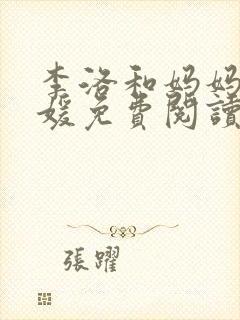 李洛和妈妈
媛免費閱讀
張躍